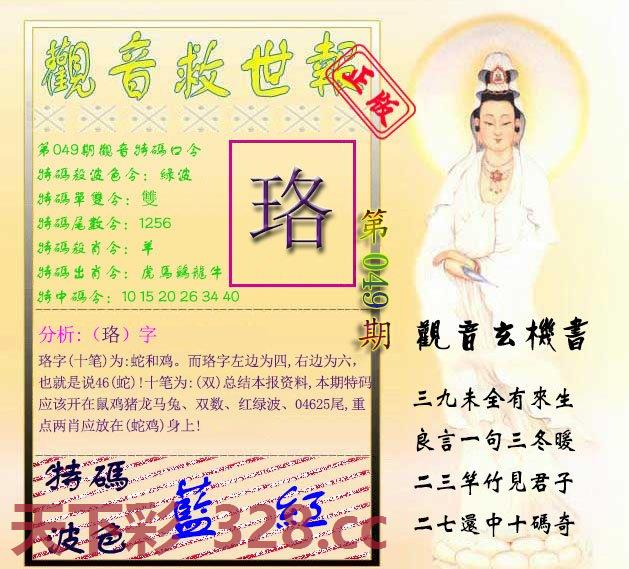 觀音救世報
正版
第049期觀音特碼口令
特碼殺波色令：綠波
特碼單雙令：雙
特碼尾數令：1256
特碼殺肖令：羊
特碼出肖令：虎馬鷄龍牛
特中碼令：10 15 20 26 34 40
珞
第049期
分析:（珞）字
珞字(十笔)为:蛇和鸡。而珞字左边为四,右边为六，
也就是说46(蛇)!十笔为:(双)总结本报资料,本期特码
应该开在鼠鸡猪龙马兔、双数、红绿波、04625尾,重
点两肖应放在(蛇鸡)身上!
特碼
波色
藍 紅
天下彩 328.cc
觀音玄機書
三九未全有來生
良言一句三冬暖
二三竿竹見君子
二七還中十碼奇